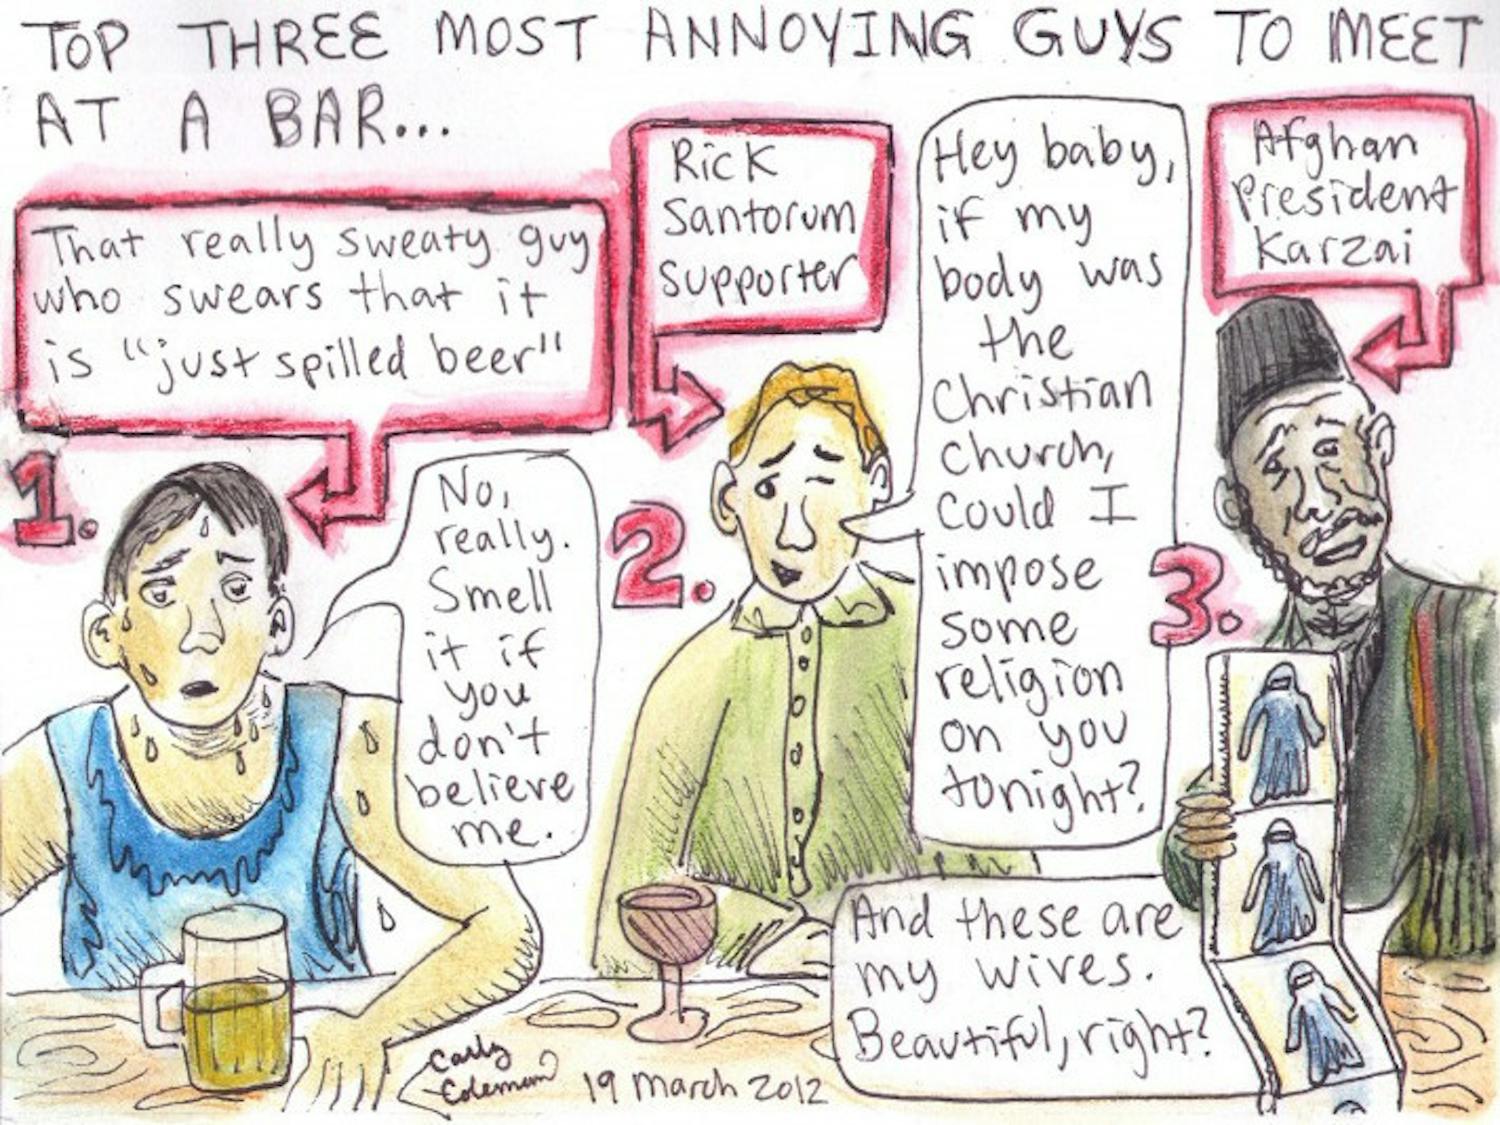 TOP THREE MOST ANNOYING GUYS TO MEET
AT A BAR...
That really sweaty guy
who swears that it
is "just spilled beer"
1.
No,
really.
Smell
it if
you
don't
believe
me.
Rick
Santorum
supporter
2.
Hey baby,
if my
body was
the
Christian
church,
could I
impose
some
religion
on you
tonight?
Afghan
President
Karzai
3.
And these are
my wives.
Beautiful, right?
Carly
Coleman
19 March 2012